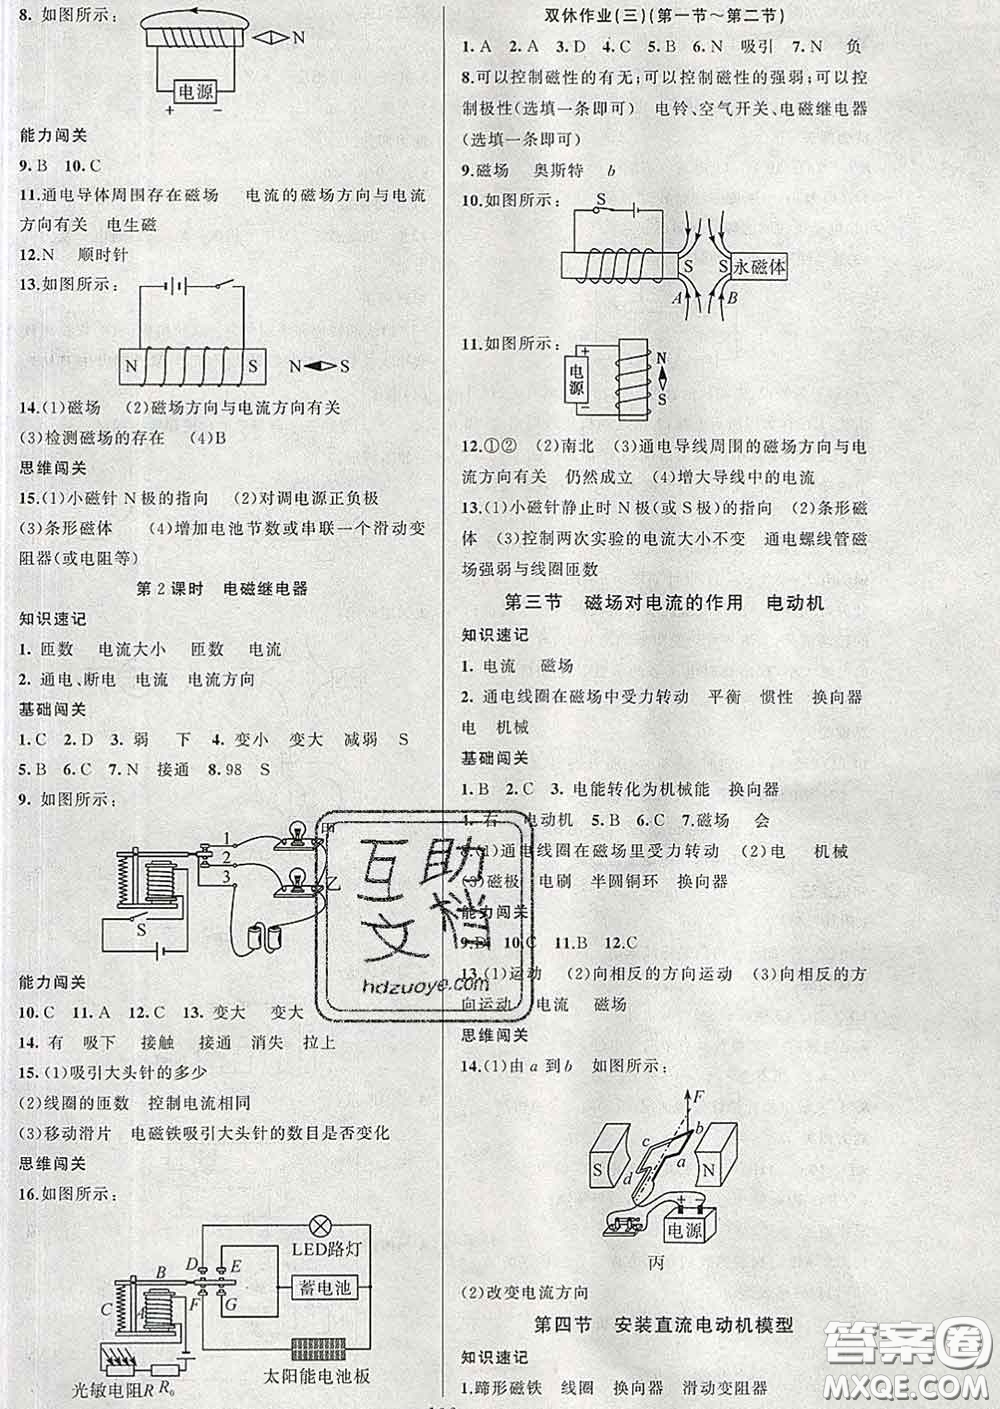 8. 如图所示:
N
电源
+ −
能力闯关
9. B 10. C
11.通电导体周围存在磁场 电流的磁场方向与电流
方向有关 电生磁
12.N 顺时针
13.如图所示:
N S N S
14.(1)磁场 (2)磁场方向与电流方向有关
(3)检测磁场的存在 (4)B
思维闯关
15.(1)小磁针N极的指向 (2)对调电源正负极
(3)条形磁体 (4)增加电池节数或串联一个滑动变
阻器(或电阻等)
第2课时 电磁继电器
知识速记
1. 匝数 电流大小 匝数 电流
2. 通电、断电 电流 电流方向
基础闯关
1.C 2.D 3. 弱 下 4. 变小 变大 减弱 S
5.B 6.C 7.N 接通 8.98 S
9. 如图所示:
1
2
3
甲
乙
S
能力闯关
10.C 11.A 12.C 13. 变大 变大
14. 有 吸下 接触 接通 消失 拉上
15.(1)吸引大头针的多少
(2)线圈的匝数 控制电流相同
(3)移动滑片 电磁铁吸引大头针的数目是否变化
思维闯关
16.如图所示:
LED路灯
B D E
蓄电池
C A F G
太阳能电池板
光敏电阻R R₀
双休作业(三)(第一节～第二节)
1.A 2.A 3.D 4.C 5.B 6.N 吸引 7.N 负
8.可以控制磁性的有无;可以控制磁性的强弱;可以
控制极性(选填一条即可) 电铃、空气开关、电磁继电器
(选填一条即可)
9.磁场 奥斯特 b
10.如图所示:
S
S S 永磁体
A B
11.如图所示:
+ 电源 −
N
S
12.①② (2)南北 (3)通电导线周围的磁场方向与电
流方向有关 仍然成立 (4)增大导线中的电流
13.(1)小磁针静止时N极(或S极)的指向 (2)条形磁
体 (3)控制两次实验的电流大小不变 通电螺线管磁
场强弱与线圈匝数
第三节 磁场对电流的作用 电动机
知识速记
1. 电流 磁场
2. 通电线圈在磁场中受力转动 平衡 惯性 换向器
电 机械
基础闯关
1.B 2.C 3. 电能转化为机械能 换向器
4. 右 电动机 5.B 6.C 7.磁场 会
8.(1)通电线圈在磁场里受力转动 (2)电 机械
(3)磁极 电刷 半圆铜环 换向器
能力闯关
9.D 10.C 11.B 12.C
13.(1)运动 (2)向相反的方向运动 (3)向相反的方
向运动 电流 磁场
思维闯关
14.(1)由a到b 如图所示:
F
b
c
a
d
S N
+ −
电源
丙
(2)改变电流方向
第四节 安装直流电动机模型
知识速记
1.蹄形磁铁 线圈 换向器 滑动变阻器
互助
文档
hdzuoye.com
答案圈
MXQE.COM